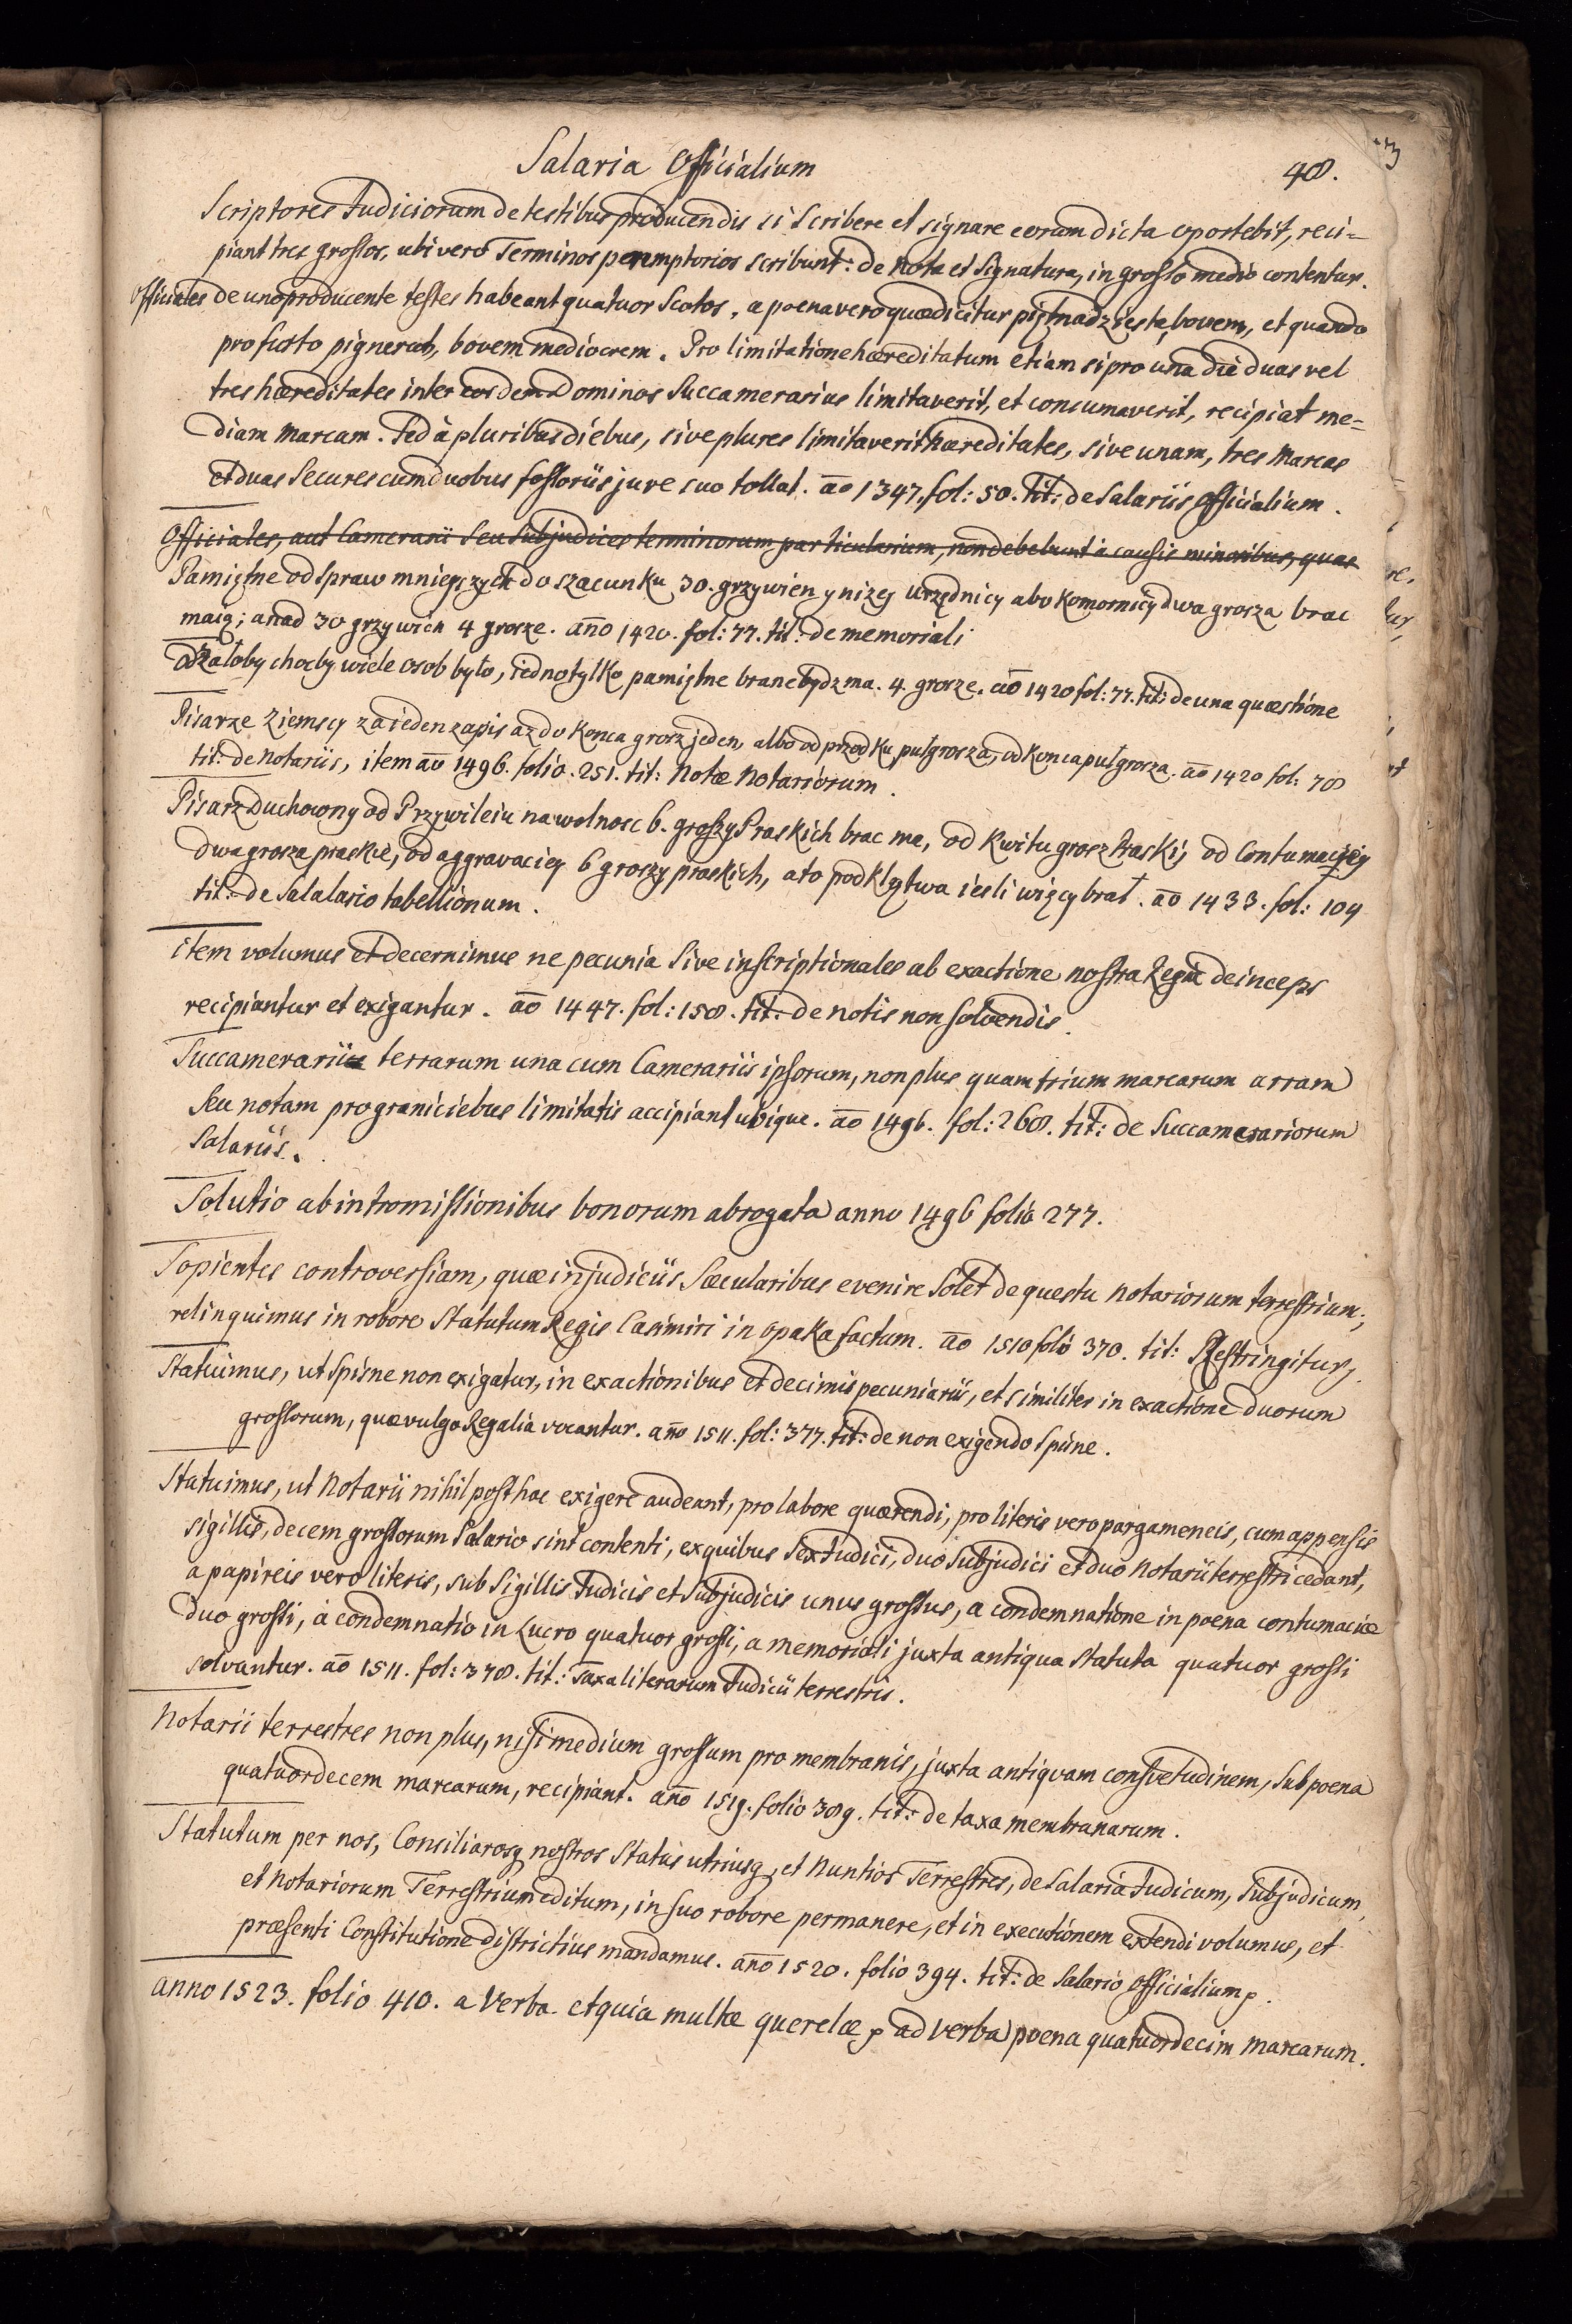 Salaria Officialium
48.
Scriptores Judiciorum de testibus producendis si Scribere et signare eorum dicta oportebit, reci=
piant tres grossos, ubi vero Terminos peremptorios scribunt: de Nota et Signatura, in grosso medio contentur.
Officiales de uno producente testes habeant quatuor Scotos, a poena vero quae dicitur piętnadziesta, bovem, et quando
pro furto pignerat, bovem mediocrem. Pro limitatione haereditatum etiam si pro una die duas vel
tres haereditates inter eosdem Dominos Succamerarius limitaverit, et consumaverit, recipiat me=
diam Marcam. Sed à pluribus diebus, sive plures limitaverit haereditates, sive unam, tres Marcas
et duas Secures cum duobus fossoriis jure suo tollat. ao 1347. fol: 50. tit: de Salariis Officialium.
Officiales, aut Camerarii Seu Subjudices terminorum particularium, non debebunt à causis minoribus, quae
Pamiętne od Spraw mnieyszych do szacunku 30. grzywien y niżey Urzędnicy abo Komornicy dwa grosza brac
maią; a nad 30 grzywien 4 grosze. año 1420. fol: 77. tit: de memoriali
Od Załoby chocby wiele osob było, iedno tylko pamiętne brane bydz ma. 4. grosze. ao 1420 fol: 77. tit: de una quaestione
Pisarze Ziemscy za ieden zapis az do Konca grosz jeden, albo od przodku puł grosza, od Konca puł grosza. ao 1420 fol: 78
tit: de Notariis, item ao 1496. folio. 251. tit: Notae Notariorum.
Pisarz Duchowny od Przywileiu na wolnosc 6. groszy Praskich brac ma, od Kwitu grosz Praski, od Contumaciey
dwa grosza praskie, od aggravaciey 6 groszy praskich, a to pod klątwa iesli więcy brał. ao 1433. fol: 104
tit: de Salalario tabellionum.
item volumus et decernimus ne pecunia Sive inscriptionales ab exactione nostra Regia deinceps
recipiantur et exigantur. ao 1447. fol: 158. tit: de notis non solvendis.
Succamerarii terrarum una cum Camerariis ipsorum, non plus quam trium marcarum arram
Seu notam pro graniciebus limitatis accipiant ubique. ao 1496. fol: 268. tit: de Succamerariorum
Salariis.
Solutio ab intromissionibus bonorum abrogata anno 1496 folio 277.
Sopientes controversiam, quae in judiciis Saecularibus evenire Solet de questu Notariorum terrestrium;
relinquimus in robore Statutum Regis Casimiri in Opaka factum. ao 1510 folio 370. tit: Restringitur,
Statuimus, ut Spisne non exigatur, in exactionibus et decimis pecuniariis, et similiter in exactione duorum
grossorum, quae vulgo Regalia vocantur. año 1511. fol: 377. tit: de non exigendo Spisne.
Statuimus, ut Notarii nihil post hac exigere audeant, pro labore quaerendi, pro literis vero pargameneis, cum appensis
sigillis, decem grossorum Salario sint contenti, ex quibus Sex Judici, duo Subjudici et duo Notarii terrestri cedant,
a papireis vero literis, sub Sigillis Judicis et Subjudicis unus grossus, a condemnatione in poena contumaciae
duo grossi, à condemnatio in Lucro quatuor grossi, a memoriali juxta antiqua Statuta quatuor grossi
solvantur. ao 1511. fol: 378. tit: Taxa literarum Judicii terrestris.
Notarii terrestres non plus, nisi medium grossum pro membranis, juxta antiquam consvetudinem, Sub poena
quatuordecem marcarum, recipiant. año 1519. folio 389. tit: de taxa membranarum.
Statutum per nos, Consiliarosq nostros Status utriusq, et Nuntios Terrestres, de Salaria Judicum, Subjudicum,
et Notariorum Terrestrium editum, in suo robore permanere, et in executionem extendi volumus, et
praesenti Constitutione districtius mandamus. año 1520. folio 394. tit: de Salario Officialium.
Anno 1523. folio 410. a Verba. et quia multae querelae ad verba poena quatuordecim marcarum.